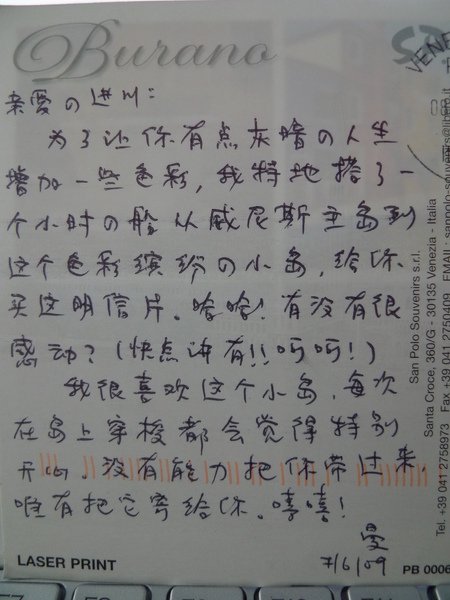 Burano
亲爱の进川：
为了让你有点灰暗の人生
增加一些色彩，我特地搭了一
个小时の船从威尼斯主岛到
这个色彩缤纷の小岛，给你
买这明信片。哈哈！有没有很
感动？(快点讲有!! 呵呵!)
我很喜欢这个小岛，每次
在岛上穿梭都会觉得特别
开心。没有能力把你带过来，
唯有把它寄给你。嘻嘻！
曼
7/6/09
LASER PRINT
PB 0006
San Polo Souvenirs s.r.l.
Santa Croce, 360/G - 30135 Venezia - Italia
Tel. +39 041 2758973 Fax +39 041 2750409 EMAIL: sanpolo-souvenirs@libero.it
VENE